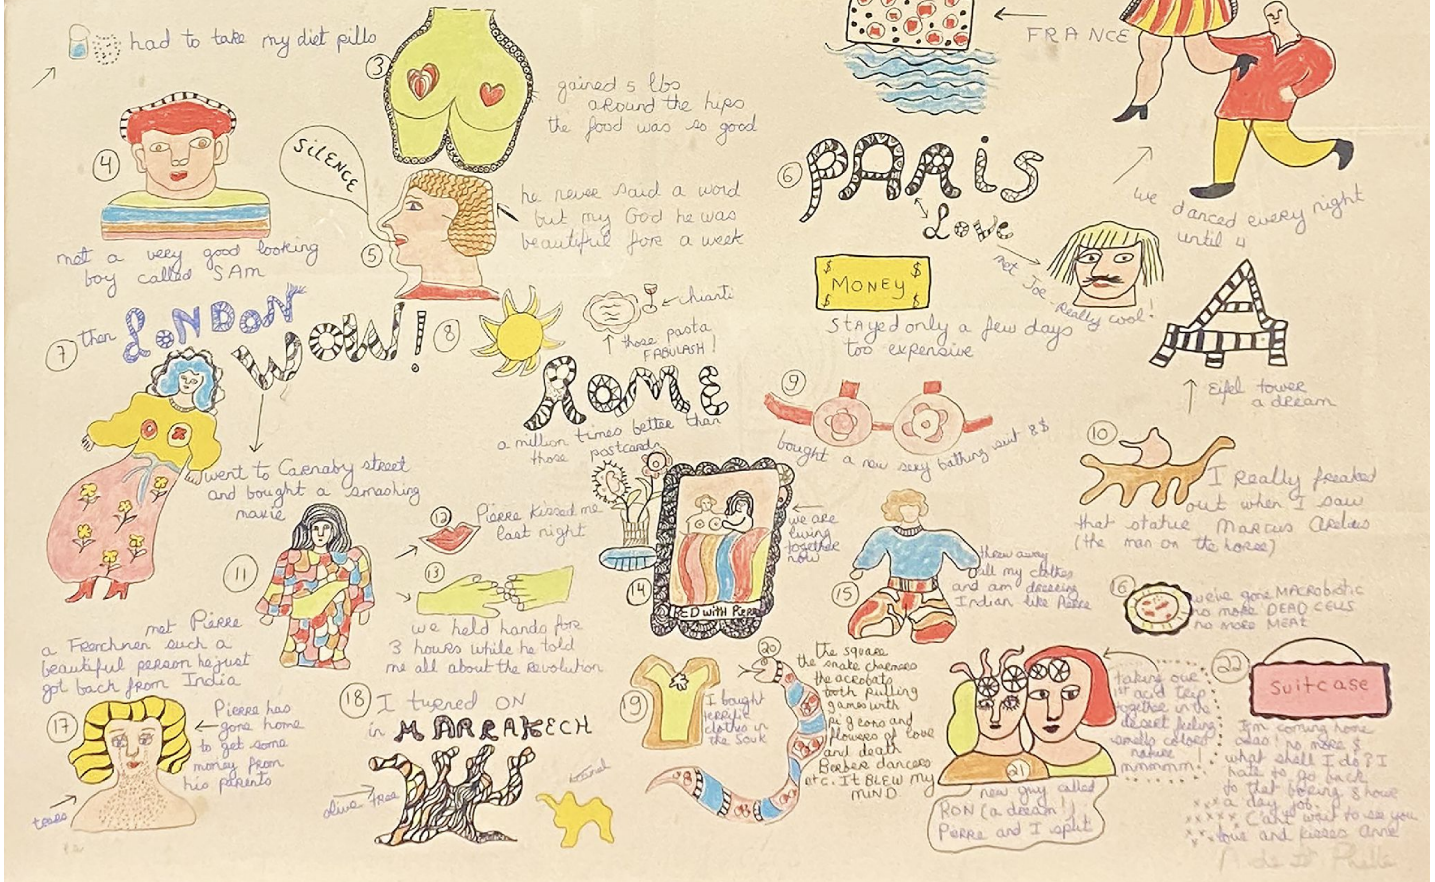 had to take my diet pills
3
gained 5 lbs
around the hips
the food was so good
FRANCE
4
met a very good looking
boy called SAm
SiLENCE
5
he never said a word
but my God he was
beautiful for a week
6
PARiS
Love
met Joe
Really cool!
we danced every night
until 4
$ $
MONEY
$ $
stayed only a few days
too expensive
A
Eifel tower
a dream
7
then LONDON
WOW!
went to Carnaby street
and bought a smashing
maxie
8
chianti
those pasta
FABULASH!
ROME
a million times better than
those postcards
9
bought a new sexy bathing suit 8$
10
I Really freaked
out when I saw
that statue Marcus Arelius
(the man on the horse)
11
met Pierre
a Frenchmen such a
beautiful person he just
got back from India
12
Pierre kissed me
last night
13
we held hands for
3 hours while he told
me all about the Revolution
14
we are
living
together
now
BED with Pierre
15
threw away
all my clothes
and am dressing
Indian like Pierre
16
we've gone MACRObiotic
no more DEAD CELLS
no more MEAT
17
Pierre has
gone home
to get some
money from
his parents
tears
18
I turned ON
in MARRAKECH
olive tree
sand
19
I bought
terrific
clothes in
the Souk
20
the square
the snake charmers
the acrobats
both pulling
games with
pigeons and
flowers of love
and death
Berber dancers
etc. It BLEW my
MIND
21
taking our
1st acid trip
together in the
desert feeling
smells colors
nature
mmmmm!
new guy called
RON (a dream!)
Pierre and I split
22
Suitcase
I'm coming home
alas! no more $
what shall I do? I
hate to go back
to that boring 8 hour
a day job.
xxx
xxxxx Can't wait to see you
xx love and kisses Anne
Niki de St Phalle